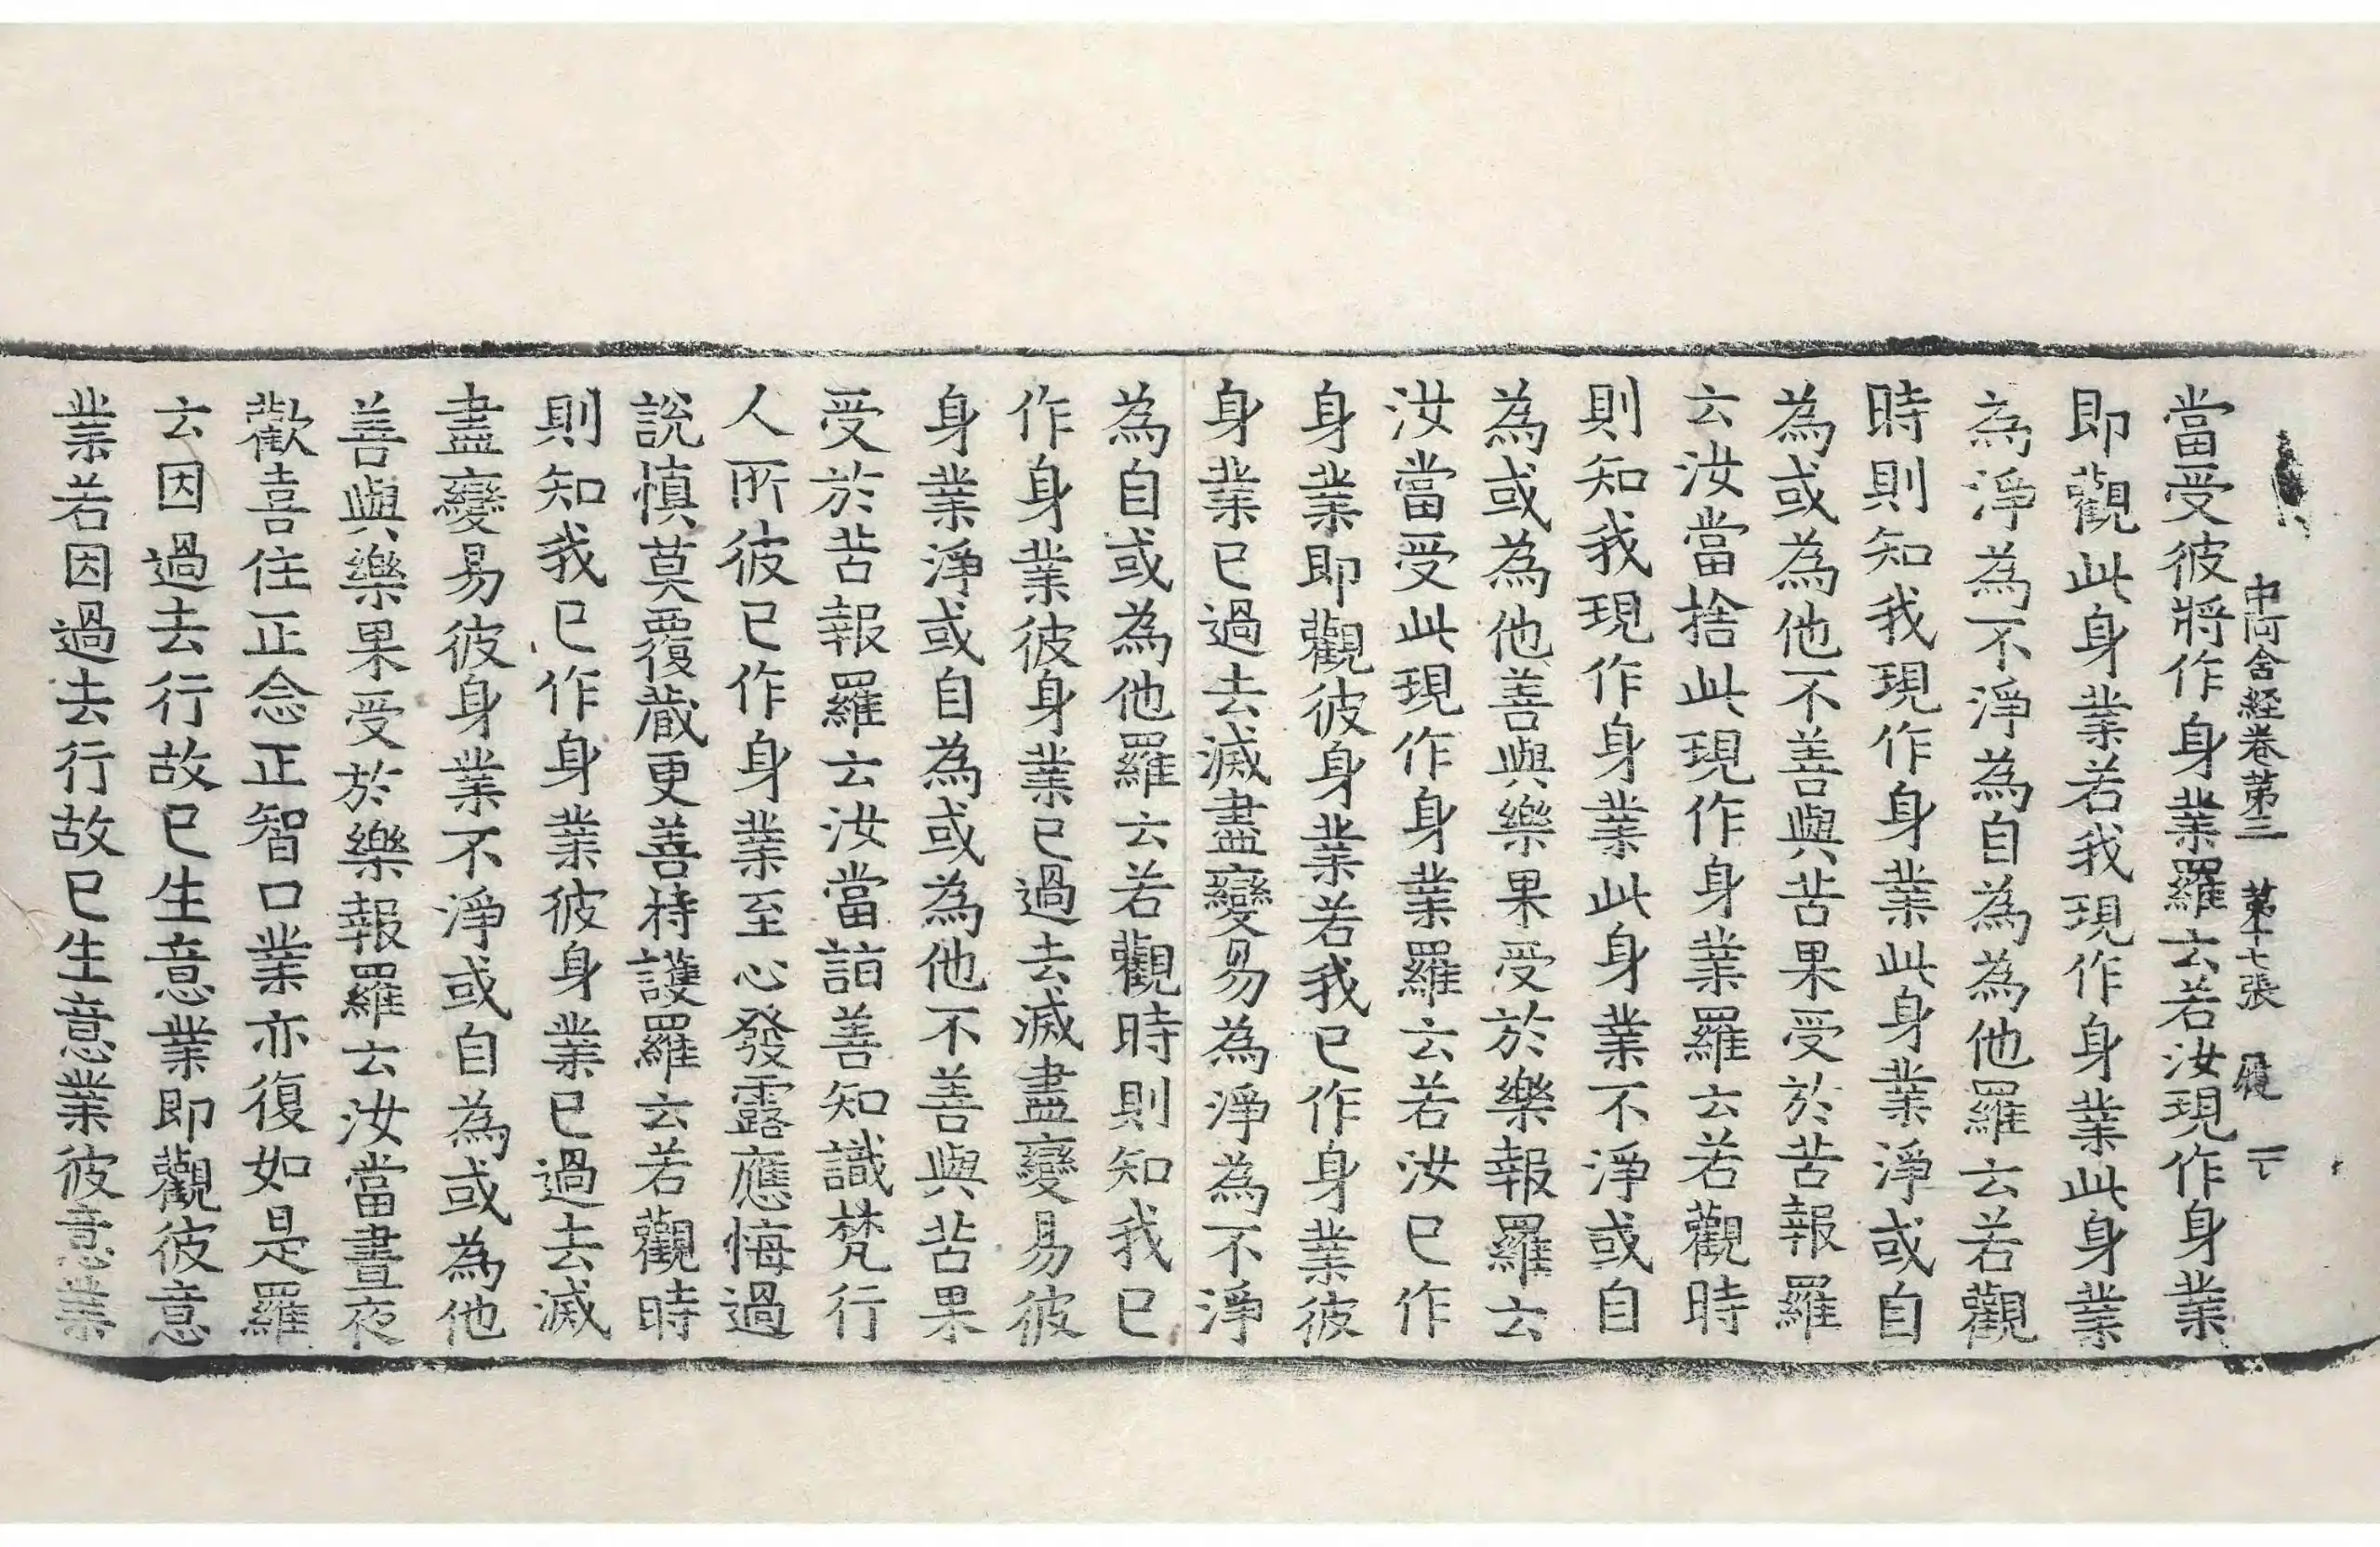 中阿含経卷第三 第十七張 履
當受彼將作身業羅云若汝現作身業
即觀此身業若我現作身業此身業
為淨為不淨為自為為他羅云若觀
時則知我現作身業此身業淨或自
為或為他不善與苦果受於苦報羅
云汝當捨此現作身業羅云若觀時
則知我現作身業此身業不淨或自
為或為他善與樂果受於樂報羅云
汝當受此現作身業羅云若汝已作
身業即觀彼身業若我已作身業彼
身業已過去滅盡變易為淨為不淨
為自或為他羅云若觀時則知我已
作身業彼身業已過去滅盡變易彼
身業淨或自為或為他不善與苦果
受於苦報羅云汝當詣善知識梵行
人所彼已作身業至心發露應悔過
說慎莫覆藏更善持護羅云若觀時
則知我已作身業彼身業已過去滅
盡變易彼身業不淨或自為或為他
善與樂果受於樂報羅云汝當晝夜
歡喜住正念正智口業亦復如是羅
云因過去行故已生意業即觀彼意
業若因過去行故已生意業彼意業